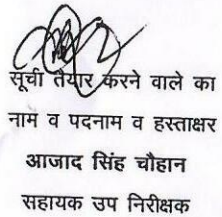 सूची तैयार करने वाले का
नाम व पदनाम व हस्ताक्षर
आजाद सिंह चौहान
सहायक उप निरीक्षक